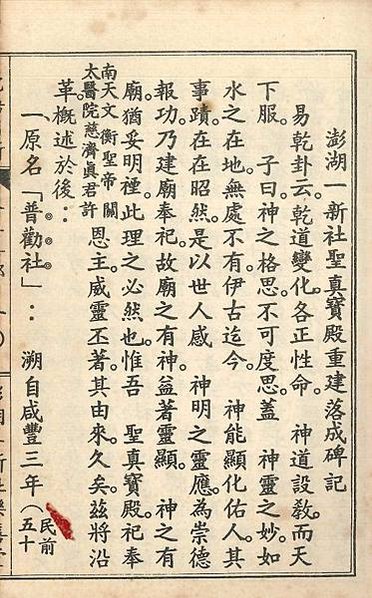 澎湖一新社聖眞寶殿重建落成碑記
易乾卦云。乾道變化各正性命。 神道設敎。而天
下服。 子曰神之格思不可度思。蓋 神靈之妙。如
水之在地。無處不有。伊古迄今。 神能顯化佑人。其
事蹟。在在昭然。是以世人感 神明之靈應。為崇德
報功。乃建廟奉祀。故廟之有神。益著靈顯。 神之有
廟。猶妥明禋。此理之必然也。惟吾 聖眞寶殿。祀奉
南天文衡聖帝 關
太醫院慈濟眞君許
恩主。威靈丕著。其由來久矣。茲將沿
革。概述於後：
一原名「普勸社」： 溯自咸豐三年（民前五十